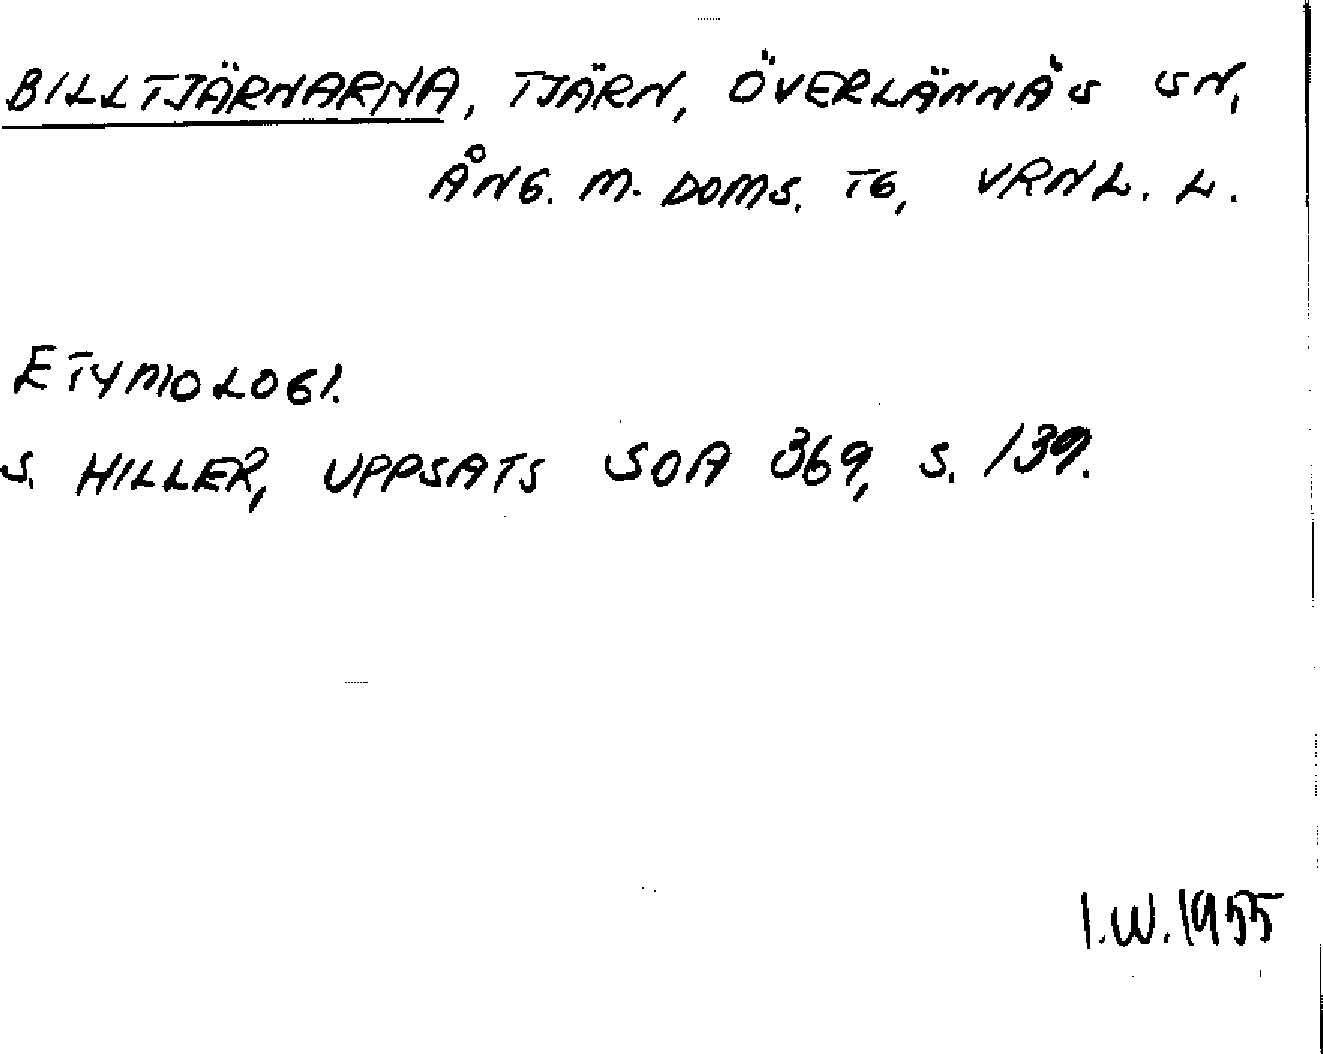 BILLTJÄRNARNA, TJÄRN, ÖVERLÄNNÄS SN,
ÅNG. M. DOMS. TG, VRNL. L.
ETYMOLOGI.
S. HILLER, UPPSATS SOA 369, S. 139.
I.W. 1955